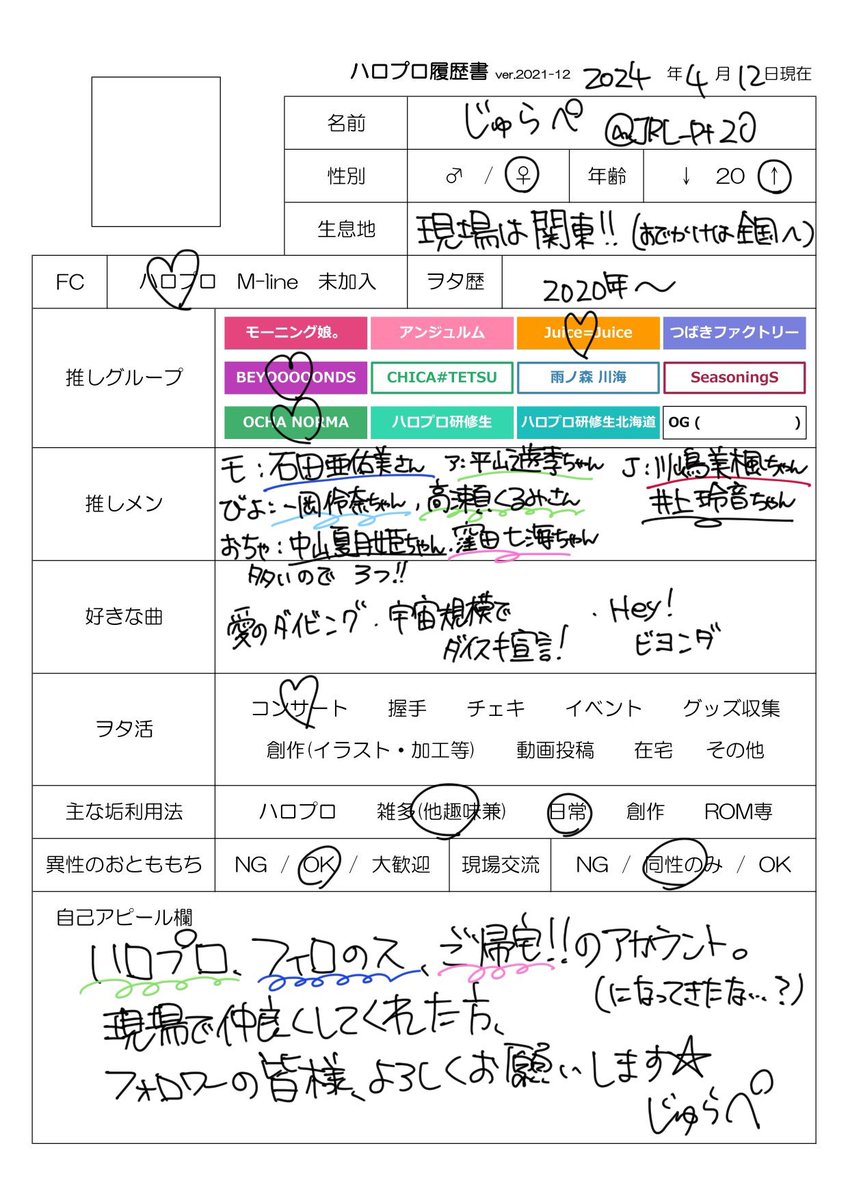 ハロプロ履歴書 ver.2021-12 2024 年 4 月 12 日現在
名前 じゅらぺ @JRL_Pt20
性別 ♂ / ♀ 年齢 ↓ 20 ↑
生息地 現場は関東!! (おでかけは全国へ)
FC ハロプロ M-line 未加入 ヲタ歴 2020年〜
推しグループ
モーニング娘。 アンジュルム Juice=Juice つばきファクトリー
BEYOOOOONDS CHICA#TETSU 雨ノ森 川海 SeasoningS
OCHA NORMA ハロプロ研修生 ハロプロ研修生北海道 OG ( )
推しメン
モ:石田亜佑美さん ア:平山遊季ちゃん J:川嶋美楓ちゃん
びよ:一岡伶奈ちゃん、高瀬くるみさん 井上玲音ちゃん
おちゃ:中山夏月姫ちゃん、窪田七海ちゃん
好きな曲
多いので 3つ!!
愛のダイビング ・宇宙規模で ・Hey!
ダイスキ宣言! ビヨンダ
ヲタ活
コンサート 握手 チェキ イベント グッズ収集
創作(イラスト・加工等) 動画投稿 在宅 その他
主な垢利用法 ハロプロ 雑多(他趣味兼) 日常 創作 ROM専
異性のおとももち NG / OK / 大歓迎 現場交流 NG / 同性のみ / OK
自己アピール欄
ハロプロ、フィロのス、ご帰宅!!のアカウント。
(になってきたな…?)
現場で仲良くしてくれた方、
フォロワーの皆様、よろしくお願いします☆
じゅらぺ